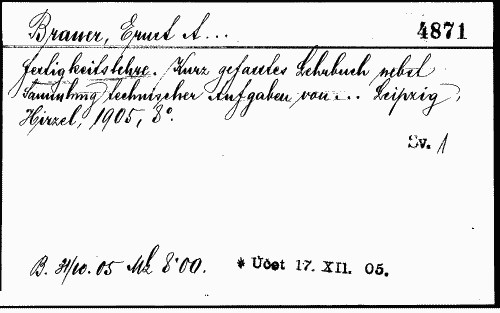 Brauer, Ernst A... 4871
Festigkeitslehre. Kurz gefasstes Lehrbuch nebst
Sammlung technischer Aufgaben von ... Leipzig,
Hirzel, 1905, 8°.
Sv. 1
B. 31/10. 05 Mk 8·00. * Účet 17. XII. 05.